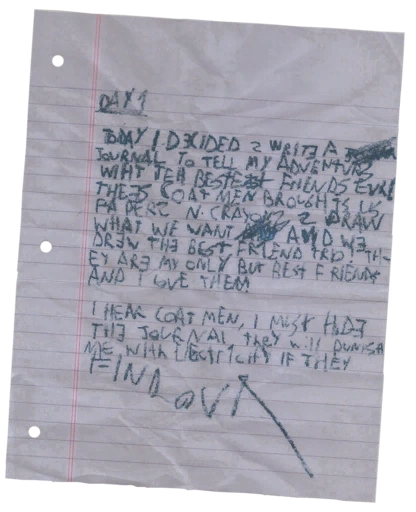 DAY 1
TODAY I D3CIDED 2 WRIT3 A
JOURNAL TO TELL MY ADVENTURS
WIHT TEH BESTEST FRIENDS EVRE
COAT MEN BROUGHT US
PAPERZ N CRAYONZ 2 DRAW
WHAT WE WANT AND W3
DR3W TH3 BEST FRIEND TRIO! TH-
EY AR3 MY ONLY BUT BEST FRIENDS
AND I LOVE THEM!
I HEAR COAT MEN, I MUST HID3
TH3 JOURNAL they will PUNISH
ME WITH IF THEY
FIND